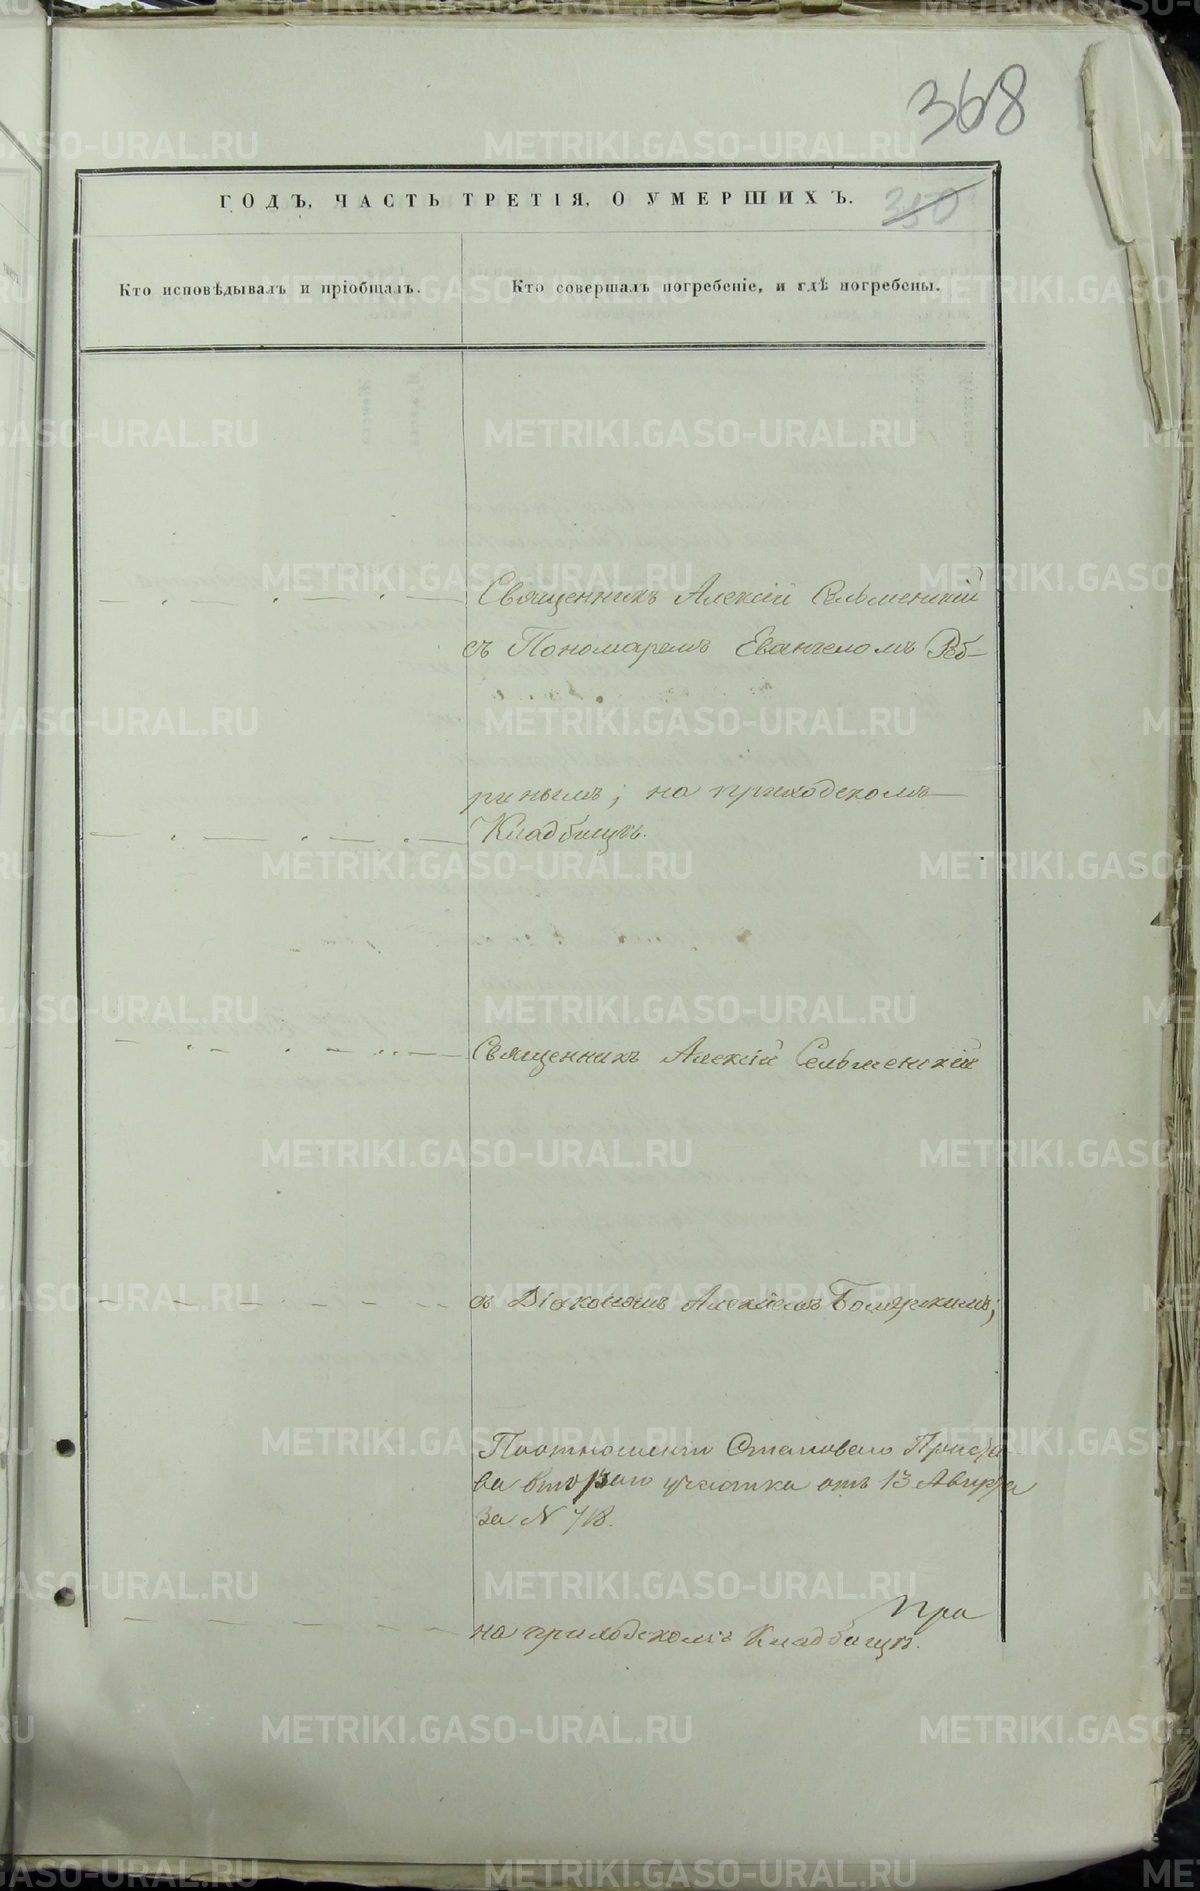 368
ГОДЪ, ЧАСТЬ ТРЕТІЯ, О УМЕРШИХЪ.
350
Кто исповѣдывалъ и пріобщалъ.
Кто совершалъ погребеніе, и гдѣ погребены.
Священникъ Алексій Сельменскій
съ Пономаремъ Евангеломъ
на приходскомъ
Кладбищѣ.
Священникъ Алексій Сельменскій
съ Діакономъ Алексіемъ
Поотношенію Становаго Приста
ва втораго участка отъ 13 Августа
за N 718.
на приходскомъ Кладбищѣ.
METRIKI.GASO-URAL.RU